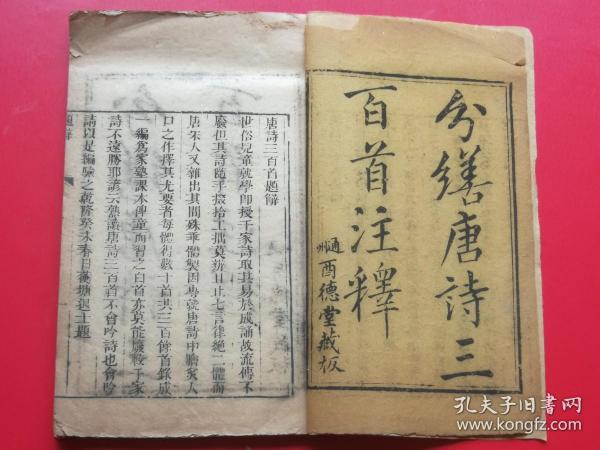 分繕唐詩三
百首注釋
通州酉德堂藏板
唐詩三百首題辭
世俗兒童就學即授千家詩取其易於成誦故流傳不
廢但其詩隨手掇拾工拙莫辨且止七言律絕二體而
唐宋人又雜出其間殊乖體製因專就唐詩中膾炙人
口之作擇其尤要者每體得數十首共三百餘首錄成
一編為家塾課本俾童而習之白首亦莫能廢較千家
詩不遠勝耶諺云熟讀唐詩三百首不會吟詩也會吟
請以是編驗之乾隆癸未春日蘅塘退士題
題辭
孔夫子旧书网
www.kongfz.com